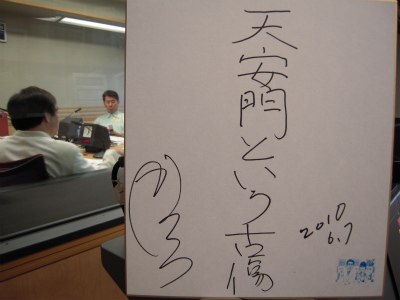 天安門という古傷
2010
6.7